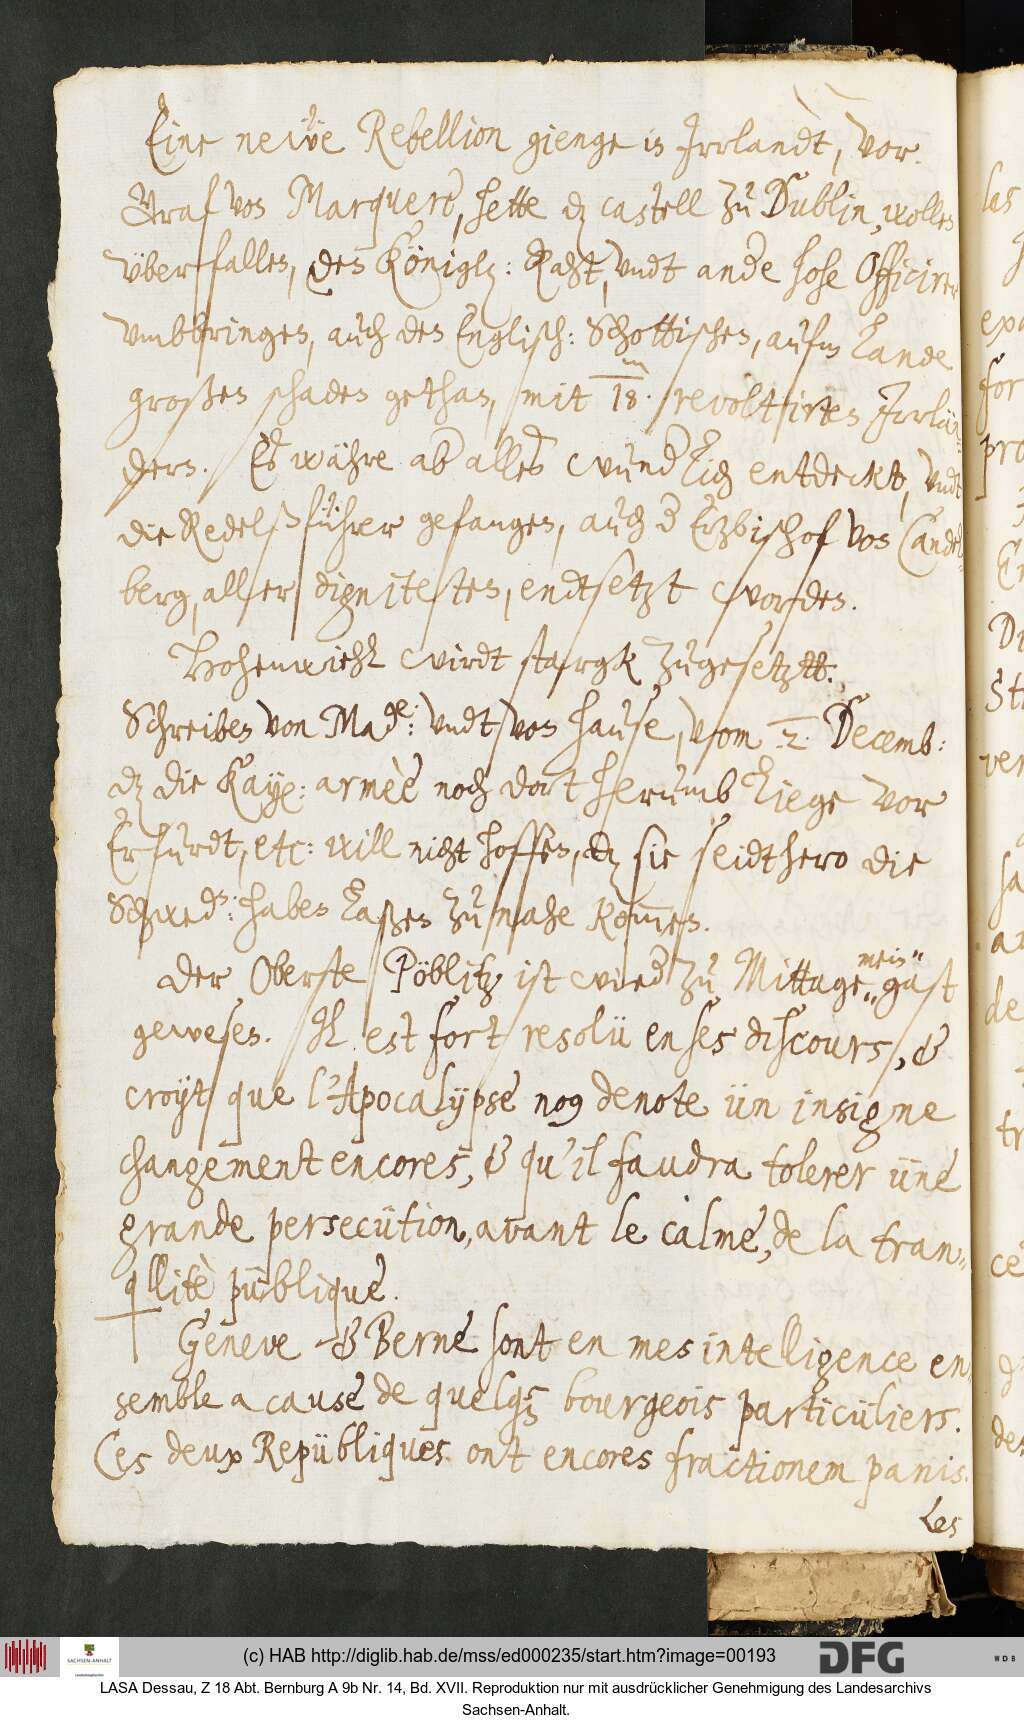 Eine neẅe Rebellion gienge in Irrlandt, vor.
Graf von Marquere, hette dz castell zu Dublin, wollen
vberfallen, den Königlz: Raht, vndt ande hohe Officirer
vmbbringen, auch den Englisch: Schottischen, aufm Lande
großen schaden gethan, mit 18.m revoltirten Irrlän-
dern. Es währe ab alles wundlich entdeckt, vndt
die Redelßführer gefangen, auch d Ertzbischof von Candel-
berg, aller digniteten, endtsetzt worden.
Hohenwiehl wirdt stargk zugesetztt.
Schreiben von Made: vndt von hause, vom 2. Decemb:
dz die Kaye: armèè noch dort herumb liege vor
Erfurdt, etc: will nicht hoffen, dz sie seidthero die
Schweds: haben laßen zu nahe kom̄en.
Der Oberste Pöblitz ist wied zu Mittage „mein„ gast
gewesen. Il est fort resolü en ses discours, &
croÿt que l'Apocalÿpse no9 denote ün insigne
changement encores, & qu'il faudra tolerer üne
grande persecütion, avant le calme, de la tran-
qllitè püblique.
Geneve & Berne sont en mes intelligence en-
semble a cause de quelqz bourgeois particüliers.
Ces deux Repübliques ont encores fractionem panis.
Les
(c) HAB http://diglib.hab.de/mss/ed000235/start.htm?image=00193
SACHSEN-ANHALT
DFG
WDB
LASA Dessau, Z 18 Abt. Bernburg A 9b Nr. 14, Bd. XVII. Reproduktion nur mit ausdrücklicher Genehmigung des Landesarchivs
Sachsen-Anhalt.